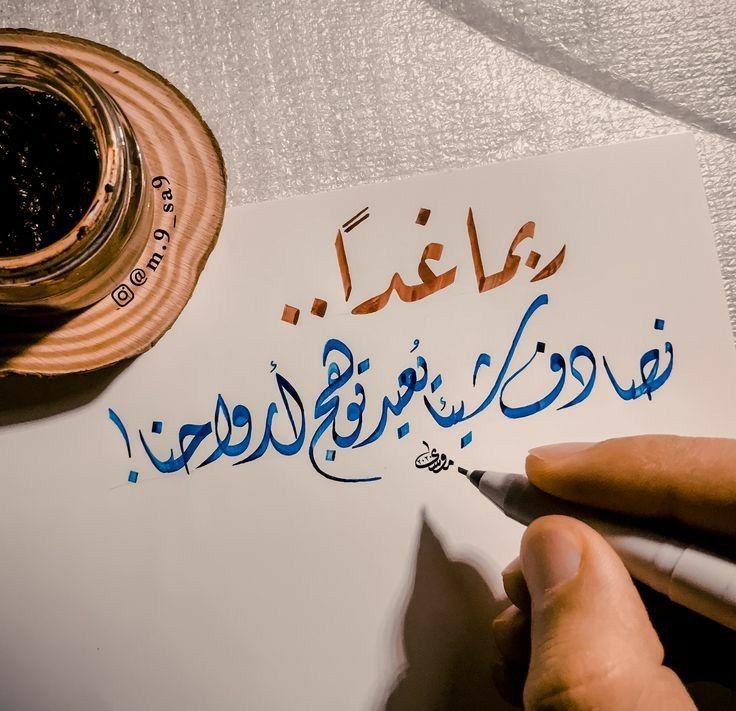 ربما غداً..
نصادف شيئا يُعيد توهج أرواحنا!
@m.9_sa9